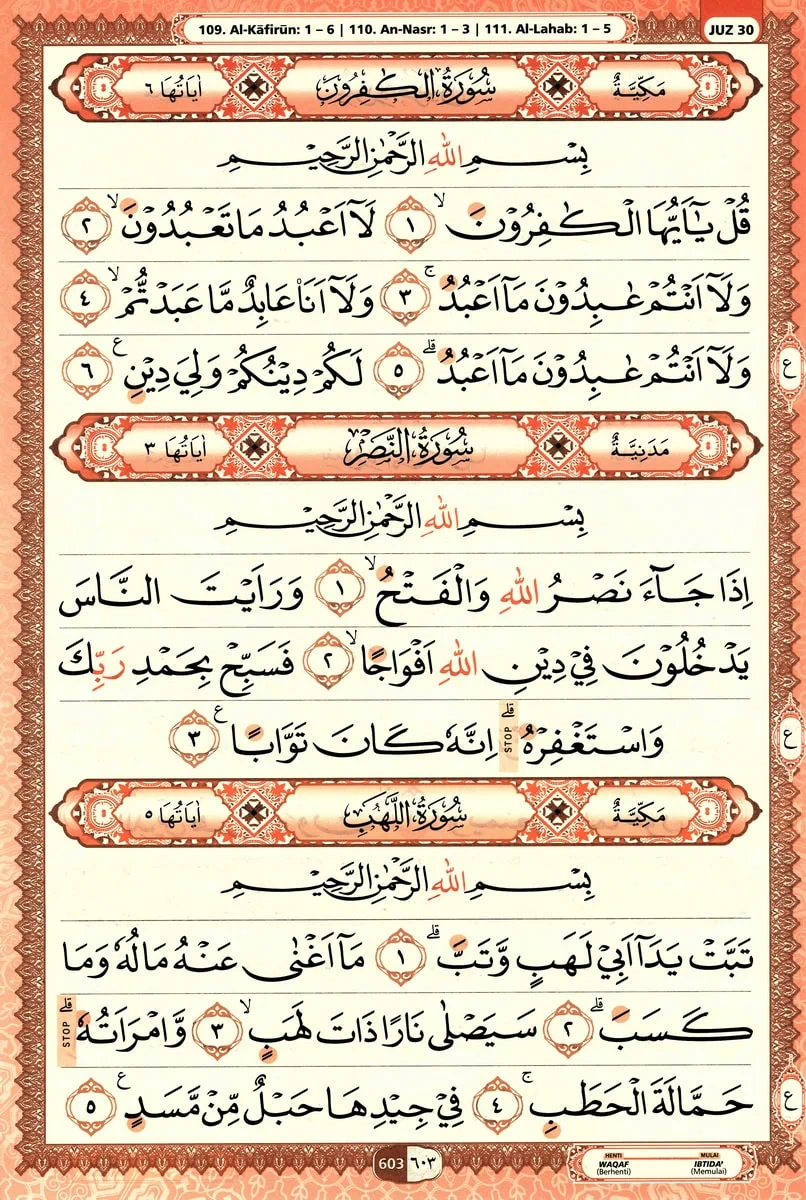 109. Al-Kāfirūn: 1 – 6 | 110. An-Nasr: 1 – 3 | 111. Al-Lahab: 1 – 5
JUZ 30
مَكِّيَّةٌ سُوْرَةُ الْكٰفِرُوْنَ اٰيَاتُهَا ٦
بِسْمِ اللّٰهِ الرَّحْمٰنِ الرَّحِيْمِ
قُلْ يٰٓاَيُّهَا الْكٰفِرُوْنَۙ ١ لَآ اَعْبُدُ مَا تَعْبُدُوْنَۙ ٢
وَلَآ اَنْتُمْ عٰبِدُوْنَ مَآ اَعْبُدُۚ ٣ وَلَآ اَنَا۠ عَابِدٌ مَّا عَبَدْتُّمْۙ ٤
وَلَآ اَنْتُمْ عٰبِدُوْنَ مَآ اَعْبُدُۗ ٥ لَكُمْ دِيْنُكُمْ وَلِيَ دِيْنِ ࣖ ٦
ع
مَدَنِيَّةٌ سُوْرَةُ النَّصْرِ اٰيَاتُهَا ٣
بِسْمِ اللّٰهِ الرَّحْمٰنِ الرَّحِيْمِ
اِذَا جَاۤءَ نَصْرُ اللّٰهِ وَالْفَتْحُۙ ١ وَرَاَيْتَ النَّاسَ
يَدْخُلُوْنَ فِيْ دِيْنِ اللّٰهِ اَفْوَاجًاۙ ٢ فَسَبِّحْ بِحَمْدِ رَبِّكَ
وَاسْتَغْفِرْهُۗ STOP اِنَّهٗ كَانَ تَوَّابًا ࣖ ٣
ع
مَكِّيَّةٌ سُوْرَةُ اللَّهَبِ اٰيَاتُهَا ٥
بِسْمِ اللّٰهِ الرَّحْمٰنِ الرَّحِيْمِ
تَبَّتْ يَدَآ اَبِيْ لَهَبٍ وَّتَبَّۗ ١ مَآ اَغْنٰى عَنْهُ مَالُهٗ وَمَا
كَسَبَۗ ٢ سَيَصْلٰى نَارًا ذَاتَ لَهَبٍۙ ٣ وَّامْرَاَتُهٗۗ STOP
حَمَّالَةَ الْحَطَبِۚ ٤ فِيْ جِيْدِهَا حَبْلٌ مِّنْ مَّسَدٍ ࣖ ٥
ع
603 ٦٠٣
HENTI MULAI
WAQAF IBTIDA'
(Berhenti) (Memulai)